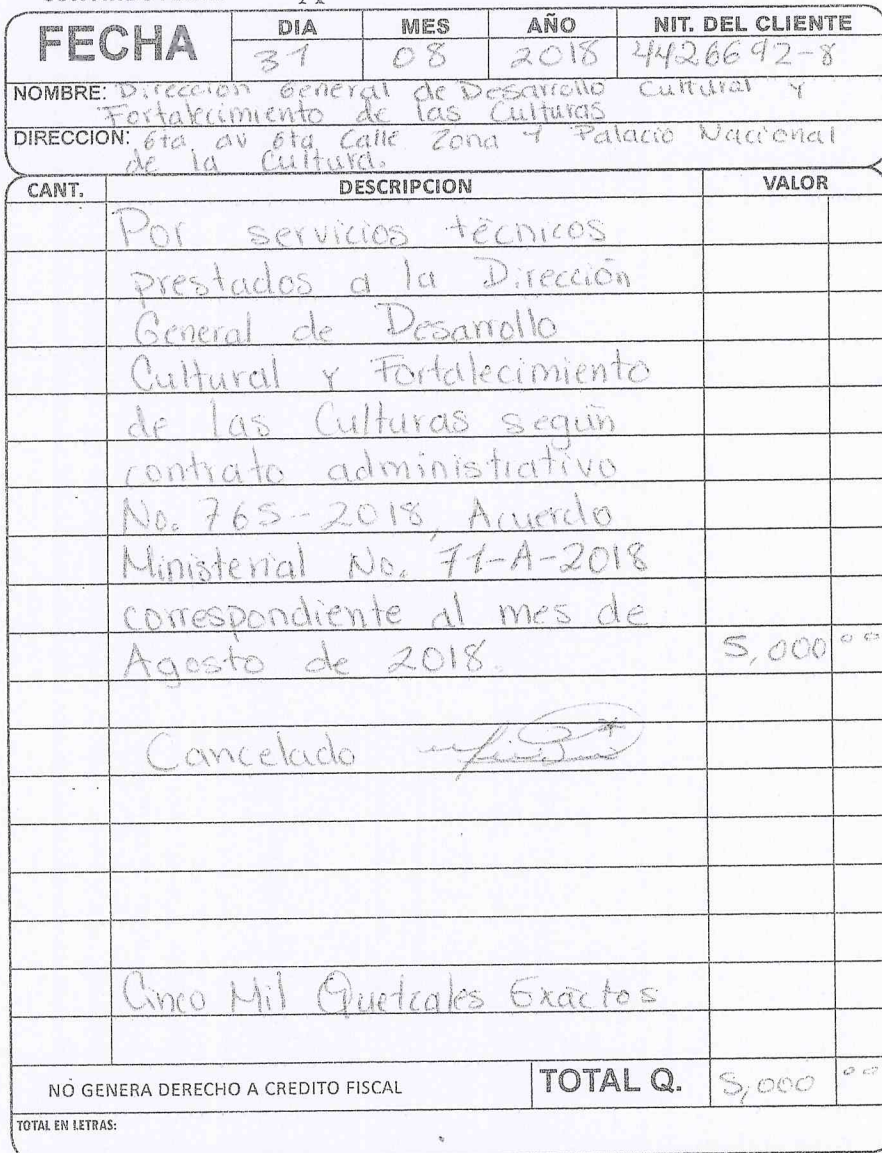 FECHA
DIA MES AÑO NIT. DEL CLIENTE
31 08 2018 4426692-8
NOMBRE: Dirección General de Desarrollo Cultural y
Fortalecimiento de las Culturas
DIRECCION: 6ta, av 6ta Calle Zona 1 Palacio Nacional
de la Cultura.
CANT. DESCRIPCION VALOR
Por servicios técnicos
prestados a la Dirección
General de Desarrollo
Cultural y Fortalecimiento
de las Culturas según
contrato administrativo
No. 765-2018, Acuerdo
Ministerial No. 71-A-2018
correspondiente al mes de
Agosto de 2018. 5,000 00
Cancelado
Cinco Mil Quetzales Exactos
NO GENERA DERECHO A CREDITO FISCAL TOTAL Q. 5,000 00
TOTAL EN LETRAS: